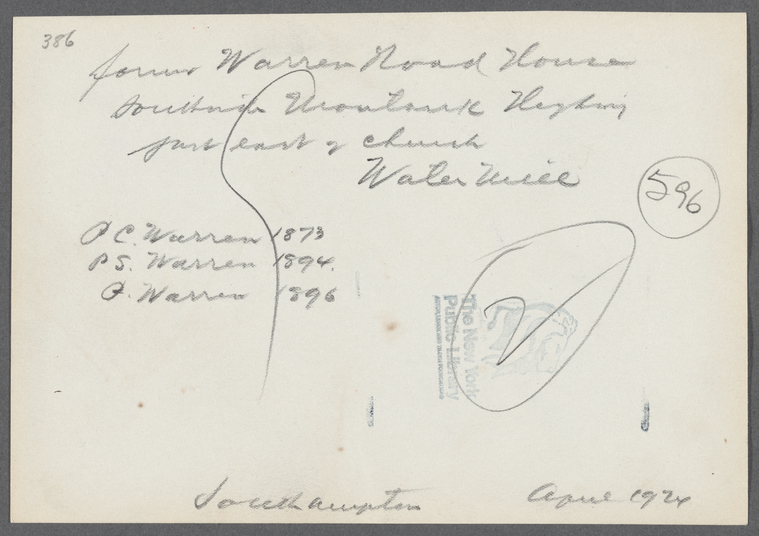 386
former Warren Road House
southside Montauk Highway
just east of church
Water Mill
596
P C. Warren 1873
P S. Warren 1894.
P. Warren 1896
The New York
Public Library
Southampton April 1924